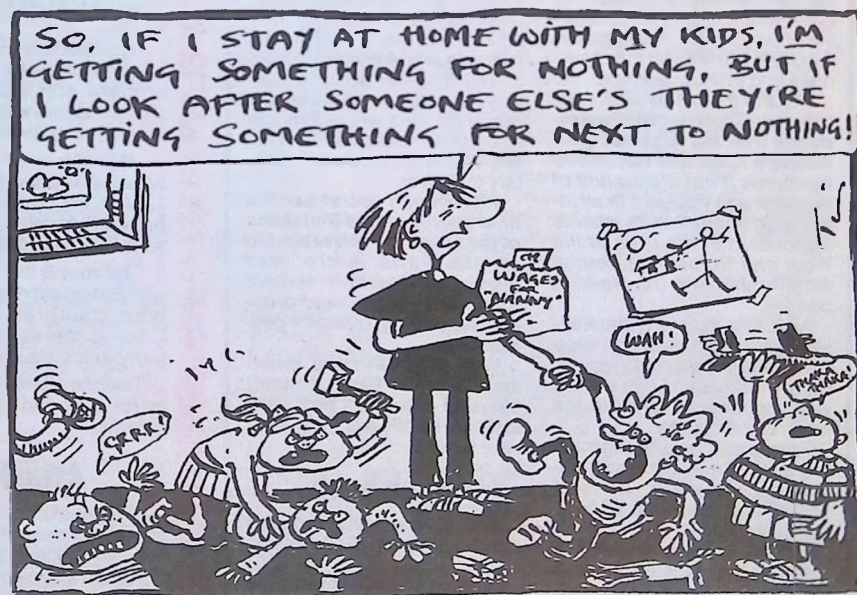 SO, IF I STAY AT HOME WITH MY KIDS, I'M
GETTING SOMETHING FOR NOTHING, BUT IF
I LOOK AFTER SOMEONE ELSE'S THEY'RE
GETTING SOMETHING FOR NEXT TO NOTHING!
WAGES
FOR
"NANNY"
WAH!
THAKA
THAKA!
GRRR!